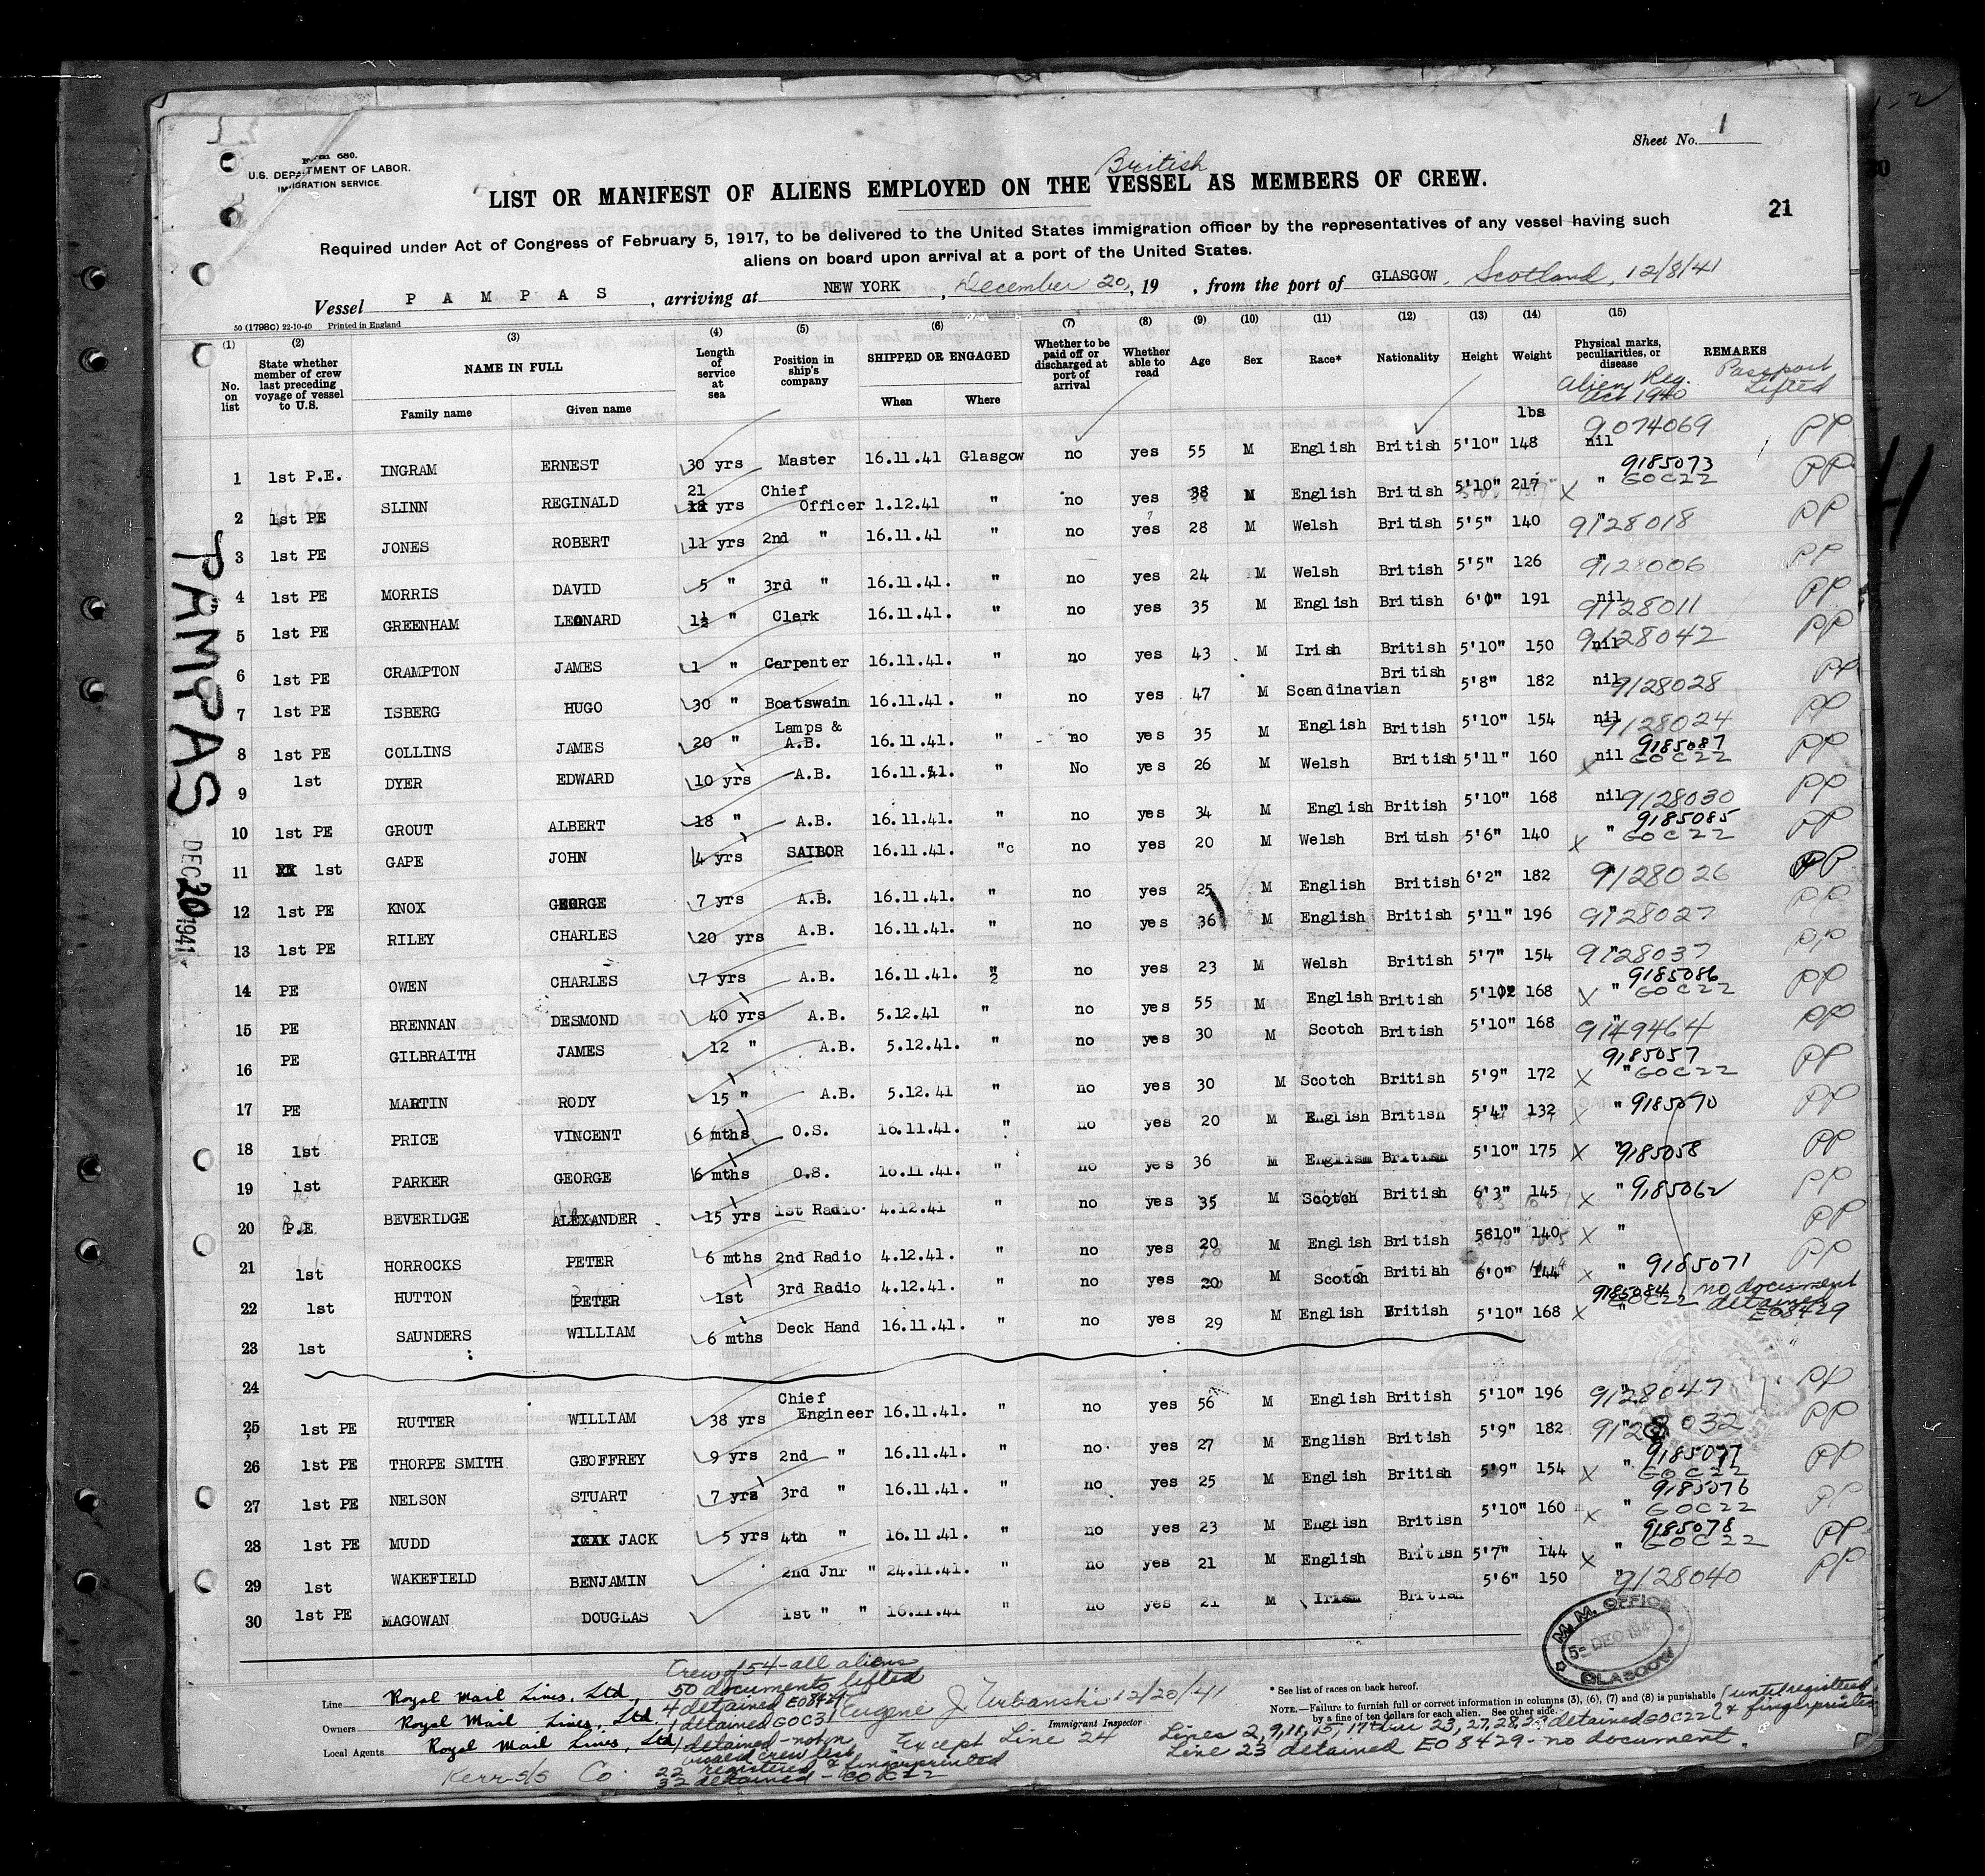 Sheet No. 1
Form 680.
U.S. DEPARTMENT OF LABOR.
IMMIGRATION SERVICE.
British
LIST OR MANIFEST OF ALIENS EMPLOYED ON THE VESSEL AS MEMBERS OF CREW.
21
Required under Act of Congress of February 5, 1917, to be delivered to the United States immigration officer by the representatives of any vessel having such
aliens on board upon arrival at a port of the United States.
Vessel PAMPAS, arriving at NEW YORK, December 20, 19 , from the port of GLASGOW, Scotland, 12/8/41
50 (1798C) 22-10-40 Printed in England
(1) (2) (3) (4) (5) (6) (7) (8) (9) (10) (11) (12) (13) (14) (15)
No. on list | State whether member of crew last preceding voyage of vessel to U.S. | NAME IN FULL | Length of service at sea | Position in ship's company | SHIPPED OR ENGAGED | Whether to be paid off or discharged at port of arrival | Whether able to read | Age | Sex | Race* | Nationality | Height | Weight | Physical marks, peculiarities, or disease | REMARKS
Family name | Given name | When | Where | lbs | Alien Reg. Act 1940 | Passport Lifted
1 1st P.E. INGRAM ERNEST 30 yrs Master 16.11.41 Glasgow no yes 55 M English British 5'10" 148 nil 9074069 PP
2 1st PE SLINN REGINALD 21 yrs Chief Officer 1.12.41 " no yes 38 M English British 5'10" 217 X " 9185073 GOC22 PP
3 1st PE JONES ROBERT 11 yrs 2nd " 16.11.41 " no yes 28 M Welsh British 5'5" 140 " 9128018 PP
4 1st PE MORRIS DAVID 5 " 3rd " 16.11.41. " no yes 24 M Welsh British 5'5" 126 " 9128006 PP
5 1st PE GREENHAM LEONARD 1½ " Clerk 16.11.41. " no yes 35 M English British 6'0" 191 nil 9128011 PP
6 1st PE CRAMPTON JAMES 1 " Carpenter 16.11.41. " no yes 43 M Irish British 5'10" 150 nil 9128042 PP
7 1st PE ISBERG HUGO 30 " Boatswain 16.11.41. " no yes 47 M Scandinavian British 5'8" 182 nil 9128028 PP
8 1st PE COLLINS JAMES 20 " Lamps & A.B. 16.11.41. " no yes 35 M English British 5'10" 154 nil 9128024 PP
9 1st DYER EDWARD 10 yrs A.B. 16.11.41. " No yes 26 M Welsh British 5'11" 160 X nil 9185087 GOC22 PP
10 1st PE GROUT ALBERT 18 " A.B. 16.11.41. " no yes 34 M English British 5'10" 168 nil 9128030 PP
11 1st GAPE JOHN 4 yrs SAILOR 16.11.41. "c no yes 20 M Welsh British 5'6" 140 X " 9185085 GOC22 PP
12 1st PE KNOX GEORGE 7 yrs A.B. 16.11.41. " no yes 25 M English British 6'2" 182 " 9128026 PP
13 1st PE RILEY CHARLES 20 yrs A.B. 16.11.41. " no yes 36 M English British 5'11" 196 " 9128027 PP
14 PE OWEN CHARLES 7 yrs A.B. 16.11.41. " no yes 23 M Welsh British 5'7" 154 " 9128037 PP
15 PE BRENNAN DESMOND 40 yrs A.B. 5.12.41 " no yes 55 M English British 168 X " 9185086 GOC22 PP
16 PE GILBRAITH JAMES 12 " A.B. 5.12.41. " no yes 30 M Scotch British 5'10" 168 " 9149464 PP
17 PE MARTIN RODY 15 " A.B. 5.12.41 " no yes 30 M Scotch British 5'9" 172 X " 9185057 GOC22 PP
18 1st PRICE VINCENT 6 mths O.S. 16.11.41. " no yes 20 M English British 5'4" 132 X " 9185070 PP
19 1st PARKER GEORGE 6 mths O.S. 16.11.41. " no yes 36 M English British 5'10" 175 X " 9185058 PP
20 P.E BEVERIDGE ALEXANDER 15 yrs 1st Radio 4.12.41 " no yes 35 M Scotch British 6'3" 145 X " 9185062 PP
21 1st HORROCKS PETER 6 mths 2nd Radio 4.12.41. " no yes 20 M English British 5810" 140 X " PP
22 1st HUTTON PETER 1st 3rd Radio 4.12.41. " no yes 20 M Scotch British 6'0" 144 X " 9185071 PP
23 1st SAUNDERS WILLIAM 6 mths Deck Hand 16.11.41. " no yes 29 M English British 5'10" 168 X " 9185084 GOC22 no document detained EO8429
24
25 1st PE RUTTER WILLIAM 38 yrs Chief Engineer 16.11.41. " no yes 56 M English British 5'10" 196 " 9128047 PP
26 1st PE THORPE SMITH GEOFFREY 9 yrs 2nd " 16.11.41. " no yes 27 M English British 5'9" 182 " 9128032 PP
27 1st PE NELSON STUART 7 yrs 3rd " 16.11.41. " no yes 25 M English British 5'9" 154 X " 9185077 GOC22 PP
28 1st PE MUDD JACK 5 yrs 4th " 16.11.41. " no yes 23 M English British 5'10" 160 X " 9185076 GOC22 PP
29 1st WAKEFIELD BENJAMIN 2nd Jnr " 24.11.41. " no yes 21 M English British 5'7" 144 X " 9185078 GOC22 PP
30 1st PE MAGOWAN DOUGLAS 1st " " 16.11.41 " no yes 21 M Irish British 5'6" 150 " 9128040 PP
PAMPAS
DEC 20 1941
M. M. OFFICE
5 DEC 194
GLASGOW
Line Royal Mail Lines, Ltd.
Owners Royal Mail Lines, Ltd.
Local Agents Royal Mail Lines, Ltd
Kerr S/S Co.
Crew of 54 - all aliens
50 documents lifted
4 detained EO8429
1 detained GOC31
1 detained - not on
visaed crew list
22 registered & fingerprinted
32 detained - GOC22
Eugene J. Urbanski 12/20/41
Immigrant Inspector
Except Line 24
* See list of races on back hereof.
NOTE.—Failure to furnish full or correct information in columns (3), (6), (7) and (8) is punishable
by a fine of ten dollars for each alien. See other side.
Lines 2, 9, 11, 15, 17 thru 23, 27, 28, 29 detained GOC22 (until registered & fingerprinted
Line 23 detained EO 8429 - no document.